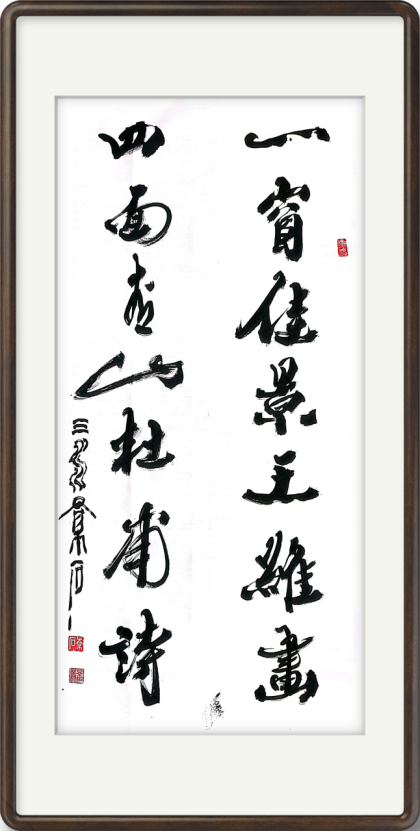 一窗佳景王維畫
四面青山杜甫詩